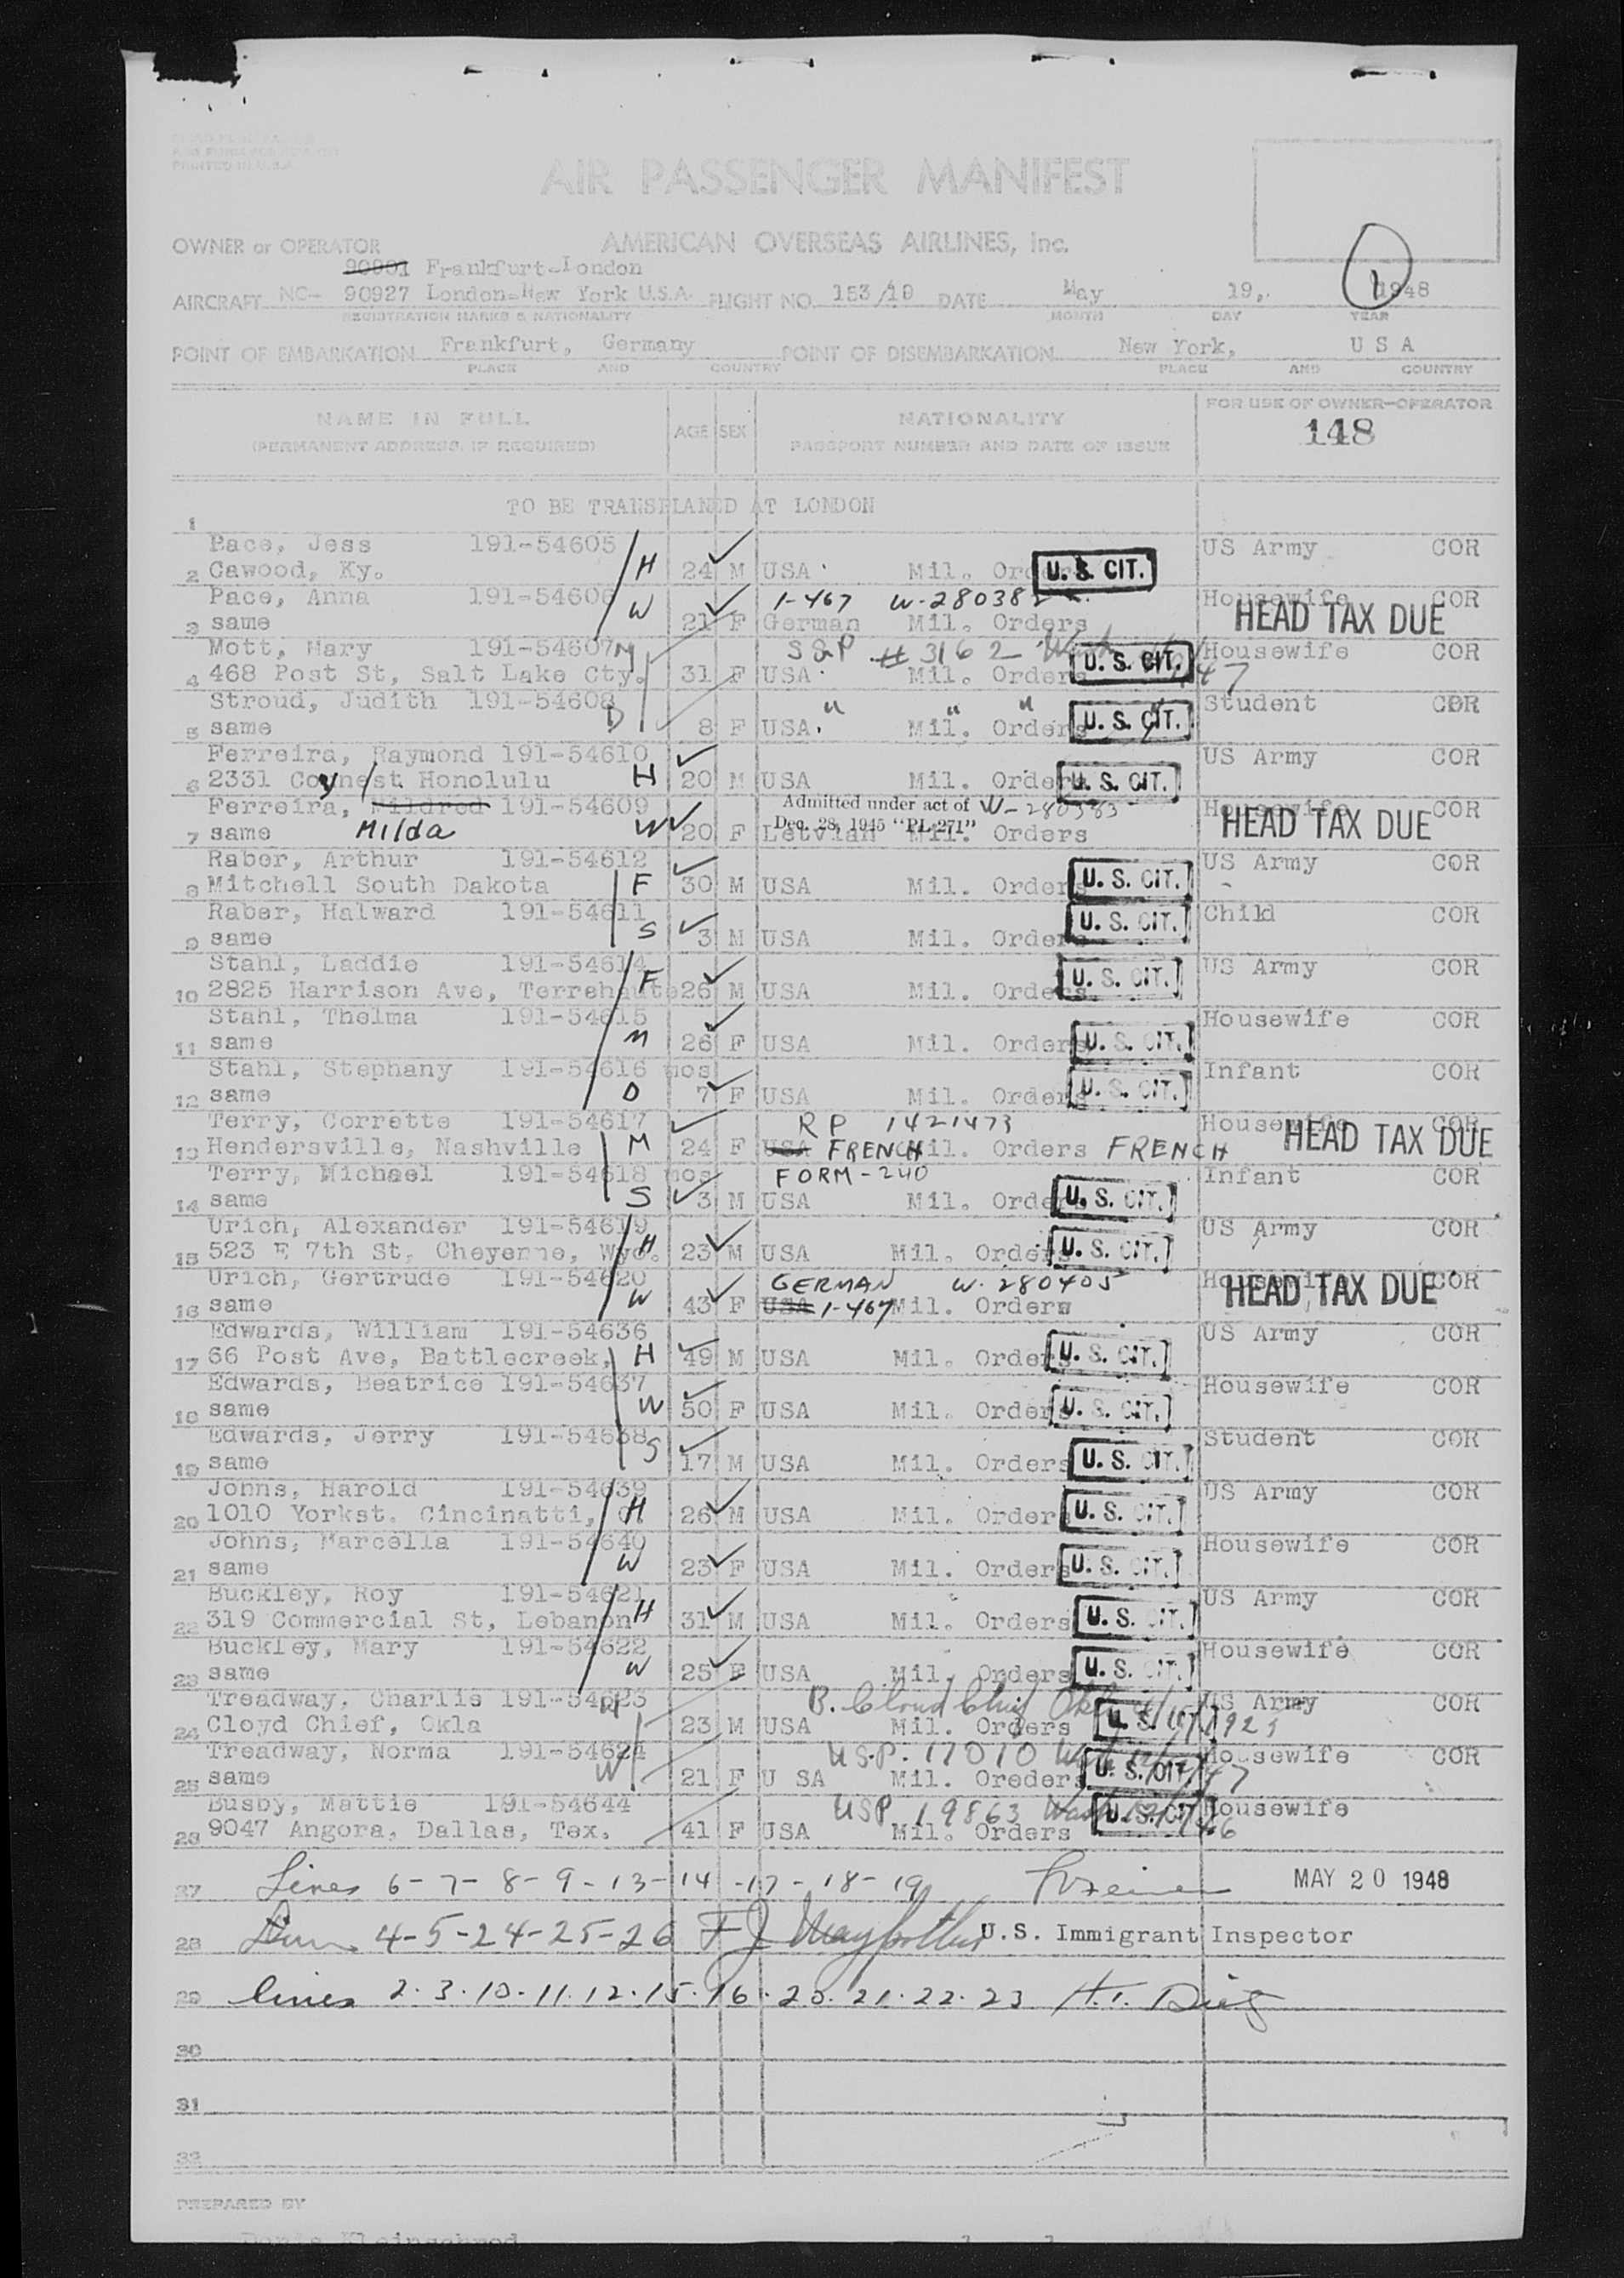 AIR PASSENGER MANIFEST
OWNER or OPERATOR AMERICAN OVERSEAS AIRLINES, Inc.
90901 Frankfurt-London
AIRCRAFT NC- 90927 London-New York U.S.A. FLIGHT NO. 153/19 DATE May 19, 1948
REGISTRATION MARKS & NATIONALITY MONTH DAY YEAR
POINT OF EMBARKATION Frankfurt, Germany POINT OF DISEMBARKATION New York, U S A
PLACE AND COUNTRY PLACE AND COUNTRY
NAME IN FULL AGE SEX NATIONALITY FOR USE OF OWNER-OPERATOR
(PERMANENT ADDRESS, IF REQUIRED) PASSPORT NUMBER AND DATE OF ISSUE 148
1 TO BE TRANSPLANED AT LONDON
Pace, Jess 191-54605 US Army COR
2 Cawood, Ky. H 24 M USA Mil. Orders U. S. CIT.
Pace, Anna 191-54606 1-467 W-280382 Housewife COR
3 same W 21 F German Mil. Orders HEAD TAX DUE
Mott, Mary 191-54607 M S&P # 3162 Housewife COR
4 468 Post St, Salt Lake Cty. 31 F USA Mil. Orders U. S. CIT. 47
Stroud, Judith 191-54608 " " " Student COR
5 same D 8 F USA. Mil. Orders U. S. CIT.
Ferreira, Raymond 191-54610 US Army COR
6 2331 Coynest Honolulu H 20 M USA Mil. Orders U. S. CIT.
Ferreira, Mildred 191-54609 Admitted under act of W-280383 Housewife COR
Dec. 28, 1945 "PL 271"
7 same Milda W 20 F Letvian Mil. Orders HEAD TAX DUE
Raber, Arthur 191-54612 US Army COR
8 Mitchell South Dakota F 30 M USA Mil. Orders U. S. CIT.
Raber, Halward 191-54611 Child COR
9 same S 3 M USA Mil. Orders U. S. CIT.
Stahl, Laddie 191-54614 US Army COR
10 2825 Harrison Ave, Terrehaute F 26 M USA Mil. Orders U. S. CIT.
Stahl, Thelma 191-54615 Housewife COR
11 same M 26 F USA Mil. Orders U. S. CIT.
Stahl, Stephany 191-54616 mos Infant COR
12 same D 7 F USA Mil. Orders U. S. CIT.
Terry, Corrette 191-54617 R P 1421473 Housewife COR
13 Hendersville, Nashville M 24 F USA FRENCH Mil. Orders FRENCH HEAD TAX DUE
Terry, Michael 191-54618 mos FORM-240 Infant COR
14 same S 3 M USA Mil. Orders U. S. CIT.
Urich, Alexander 191-54619 US Army COR
15 523 E 7th St, Cheyenne, Wyo. H 23 M USA Mil. Orders U. S. CIT.
Urich, Gertrude 191-54620 GERMAN W-280405 Housewife COR
16 same W 43 F USA 1-467 Mil. Orders HEAD TAX DUE
Edwards, William 191-54636 US Army COR
17 66 Post Ave, Battlecreek, H 49 M USA Mil. Orders U. S. CIT.
Edwards, Beatrice 191-54637 Housewife COR
18 same W 50 F USA Mil. Orders U. S. CIT.
Edwards, Jerry 191-54638 Student COR
19 same S 17 M USA Mil. Orders U. S. CIT.
Johns, Harold 191-54639 US Army COR
20 1010 Yorkst. Cincinatti, H 26 M USA Mil. Orders U. S. CIT.
Johns, Marcella 191-54640 Housewife COR
21 same W 23 F USA Mil. Orders U. S. CIT.
Buckley, Roy 191-54621 US Army COR
22 319 Commercial St, Lebanon H 31 M USA Mil. Orders U. S. CIT.
Buckley, Mary 191-54622 Housewife COR
23 same W 25 F USA Mil. Orders U. S. CIT.
Treadway, Charlie 191-54623 H B. Cloud Chief Okla US Army COR
24 Cloyd Chief, Okla 23 M USA Mil. Orders U. S. CIT.
Treadway, Norma 191-54624 USP. 17010 Housewife COR
25 same W 21 F U SA Mil. Oreders U. S. CIT. 47
Busby, Mattie 191-54644 USP 19863 Wash Housewife
26 9047 Angora, Dallas, Tex. 41 F USA Mil. Orders U. S. CIT. 46
27 Lines 6-7-8-9-13-14-17-18-19 MAY 20 1948
28 4-5-24-25-26 U.S. Immigrant Inspector
29 lines 2.3.10.11.12.15.16.20.21.22.23
30
31
32
PREPARED BY